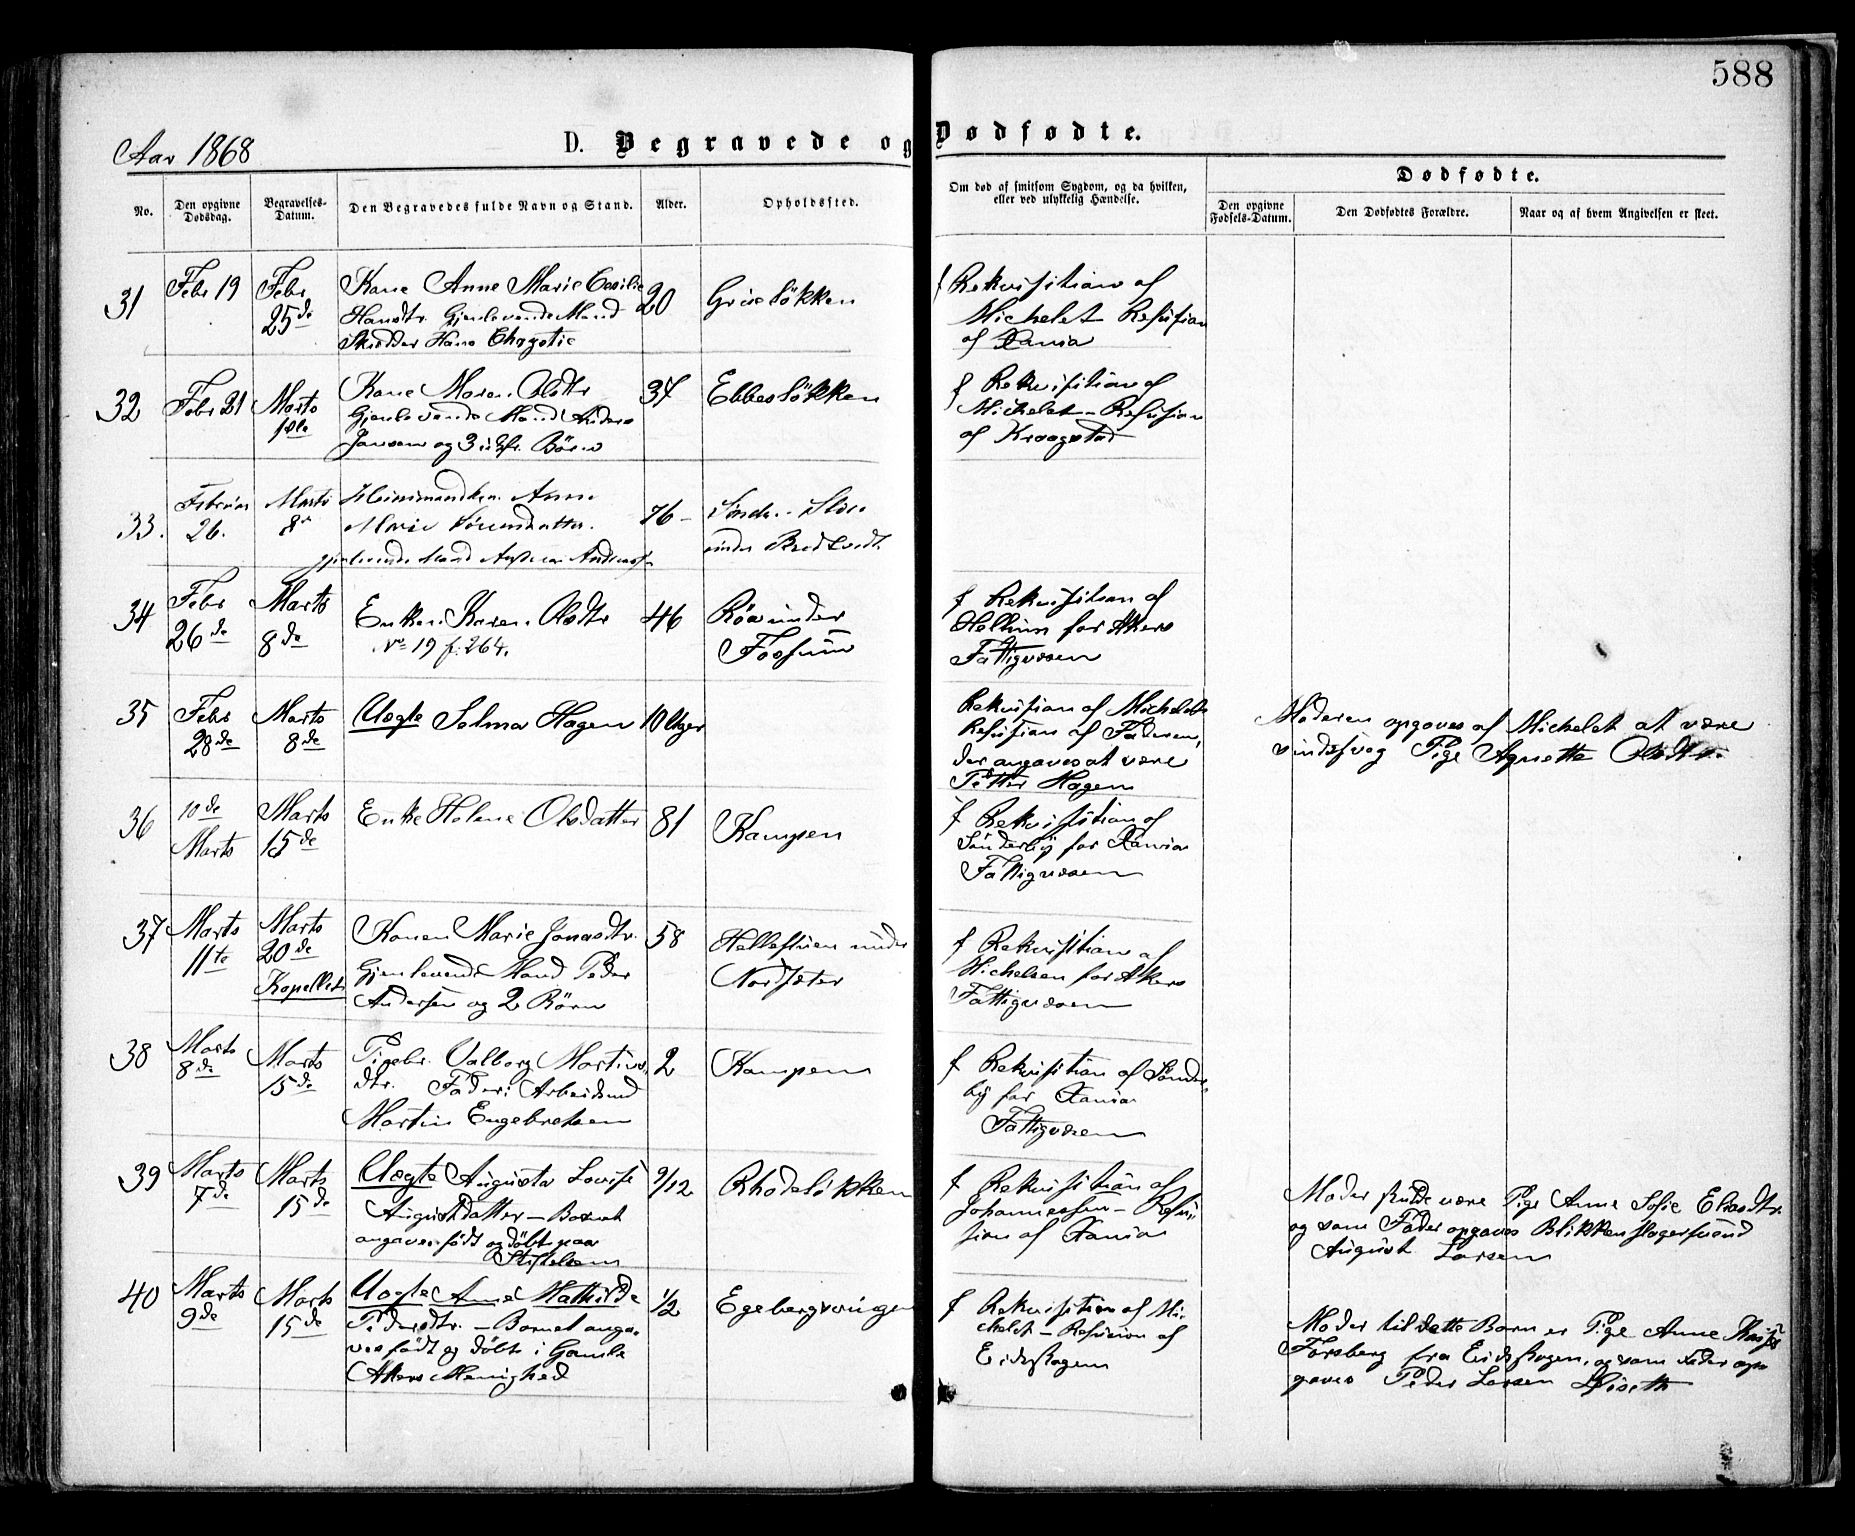 588
Aar 1868
D. Begravede og Dødfødte.
No.
Den opgivne Dødsdag.
Begravelses-Datum.
Den Begravedes fulde Navn og Stand.
Alder.
Opholdssted.
Om død af smitsom Sygdom, og da hvilken, eller ved ulykkelig Hændelse.
Dødfødte.
Den opgivne Fødsels-Datum.
Den Dødfødtes Forældre.
Naar og af hvem Angivelsen er skeet.
31
Febr 19
Febr
25de
Kone Anne Marie Cecilie
Hansdtr. Gjenlevende Mand
Skrædder Hans
20
Grüneløkken
f Rekvisition af
Michelet Refusion
af Xania
32
Febr 21
Marts
Kone Maren Olsdtr
Gjenlevende Mand Anders
Jensen og 3 Børn
37
Ebbesløkken
f Rekvisition af
Michelet – Refusion
af Kraagstad
33.
Februar
26.
Marts
8de
Huusmandskone Anne
Marie Sørensdatter.
gjenlevende Mand Andreas
76
under Bredtvedt
34
Febr
26de
Marts
8de
Enken Karen Olsdtr
No 19 f. 264.
46
Røa under
Fossum
f Rekvisition af
for Akers
Fattigvæsen
35
Febr
28de
Marts
8de
Uægte Selma Hagen
10 Uger
Rekvisition af Michelet
Refusion af Faderen,
der angaves at være
Petter Hagen
Moderen opgaves af Michelet at være
sindssvag Pige Agnette Olsdtr.
36
10de
Marts
Marts
15de
Enke Helene Olsdatter
81
Kampen
f Rekvisition af
Sønderby for Xania
Fattigvæsen
37
Marts
11te
Marts
20de
Kapellet
Konen Marie Jonasdtr.
Gjenlevende Mand Peder
Andersen og 2 Børn
58
under
Nordseter
f Rekvisition af
Michelsen for Akers
Fattigvæsen
38
Marts
8de
Marts
15de
Pigebr. Valborg Martins
dtr. Fader: Arbeidsmd
Martin Engebretsen
2
Kampen
f Rekvisition af Sønder
by for Xania
Fattigvæsen
39
Marts
7de
Marts
15de
Uægte Augusta Lovise
Augustdatter – Barnet
angaves født og døbt paa
Stiftelsen
9/12
Rhodeløkken
f Rekvisition af
Johannessen – Refu
sion af Xania
Moder skulde være Pige Anne Sofie Eliasdtr.
og som Fader opgaves Blikkenslagersvend
August Larsen
40
Marts
9de
Marts
15de
Uægte Anne Mathilde
Pedersdtr. – Barnet anga
ves født og døbt i Gamle
Akers Menighed
1/2
Egebergveringen
f Rekvisition af Mi
chelet – Refusion af
Eidsskogen
Moder til dette Barn er Pige Anne
Forsberg fra Eidsskogen, og som Fader op
gaves Peder Larsen